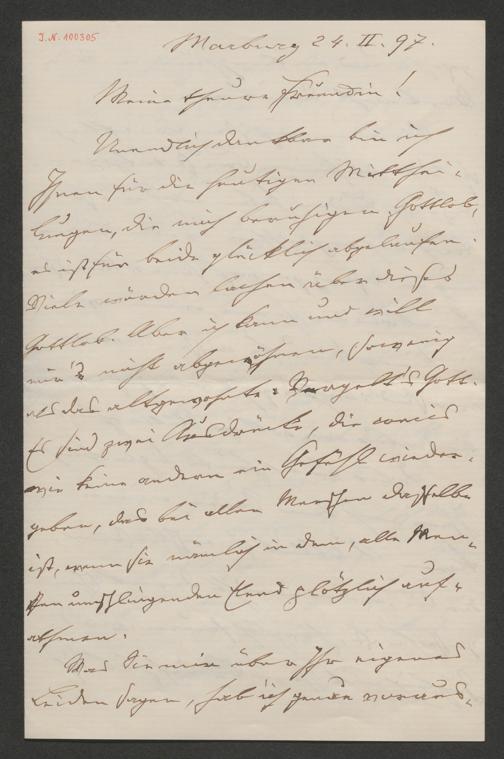 J.N. 100305
Marburg 24. II. 97.
Meine theure Freundin!
Unendlich dankbar bin ich
Ihnen für die heutigen Mitthei-
lungen, die mich beruhigen. Gottlob,
es ist für beide glücklich abgelaufen.
Viele würden lachen über dieses
Gottlob. Aber ich kann und will
mir's nicht abgewöhnen, sowenig
als das altgewohnte: Vergelt's Gott.
Es sind zwei Ausdrücke, die
wie keine andern ein Gefühl wieder-
geben, das bei allen Menschen dasselbe
ist, wenn sie nämlich in dem, alle Men-
schen umschlingenden Elend plötzlich auf-
athmen.
Was Sie mir über Ihr eigenes
Leiden sagen, hab ich genau voraus-